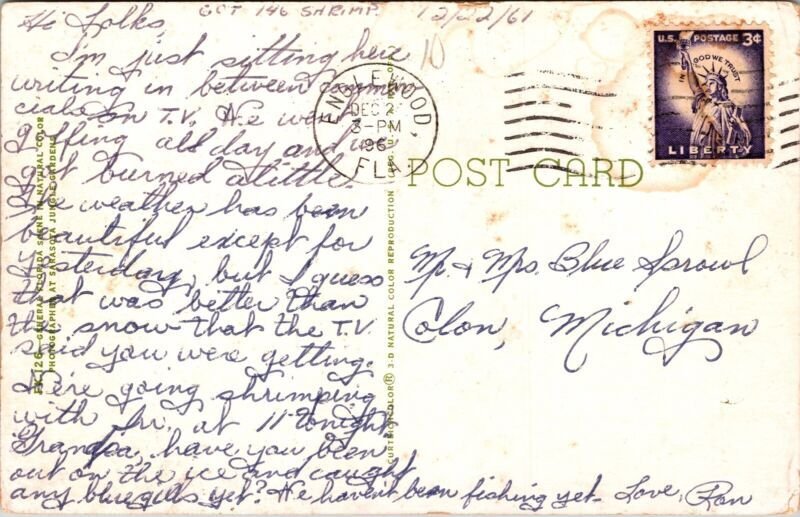 GOT 146 SHRIMP 12/22/61
10
Hi Folks,
I'm just sitting here
writing in between commer
cials on T.V. We were
golfing all day and we
got burned a little.
The weather has been
beautiful except for
yesterday, but I guess
that was better than
the snow that the T.V.
said you were getting.
We're going shrimping
with Jr. at 11 tonight.
Grandpa, have you been
out on the ice and caught
any bluegills yet? We haven't been fishing yet- Love, Ron
ENGLEWOOD,
DEC 2
3-PM
196
FLA
U.S. POSTAGE 3¢
IN GOD WE TRUST
LIBERTY
POST CARD
Mr. & Mrs. Blue Sprowl
Colon, Michigan
126-GENERAL FLORIDA SCENE IN NATURAL COLOR
PHOTOGRAPHED AT SARASOTA JUNGLE GARDENS
CURTEICHCOLOR® 3-D NATURAL COLOR REPRODUCTION